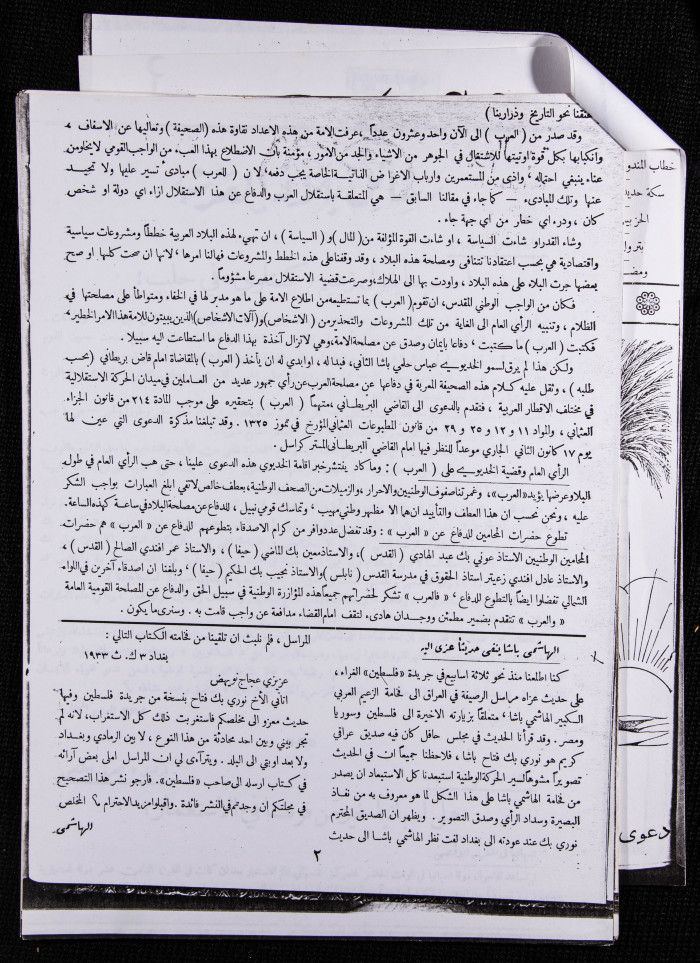 عنقنا نحو التاريخ وذرارينا )
وقد صدر من ( العرب ) الى الآن واحد وعشرون عدداً ، عرفت الامة من هذه الاعداد نقاوة هذه (الصحيفة ) وتعاليها عن الاسفاف ،
وانكبابها بكل قوة اوتيتها للاشتغال في الجوهر من الاشياء والجد من الامور ، مؤمنة بأن الاضطلاع بهذا العب. من الواجب القومي لايخلو من
عناء ينبغي احتماله ، واذى من المستعمرين وارباب الاغراض الذاتية الخاصة يجب دفعه ، لان ( للعرب ) مبادىء تسير عليها ولا تحيد
عنها وتلك المبادىء — كما جاء في مقالنا السابق — هي المتعلقة باستقلال العرب والدفاع عن هذا الاستقلال ازاء اي دولة او شخص
كان ، ودرء اي خطر من اي جهة جاء .
وشاء القدر او شاءت السياسة ، او شاءت القوة المؤلفة من (المال ) و ( السياسة ) ، ان تهيء لهذه البلاد العربية خططاً ومشروعات سياسية
واقتصادية هي بحسب اعتقادنا تتنافى ومصلحة هذه البلاد ، وقد وقفنا على هذه الخطط والمشروعات فهالنا امرها ، لانها ان صحت كلها او صح
بعضها جرت البلاء على هذه البلاد ، واودت بها الى الهلاك، وصرعت قضية الاستقلال مصرعا مشؤوماً .
فكان من الواجب الوطني المقدس، ان تقوم ( العرب ) بما تستطيعه من اطلاع الامة على ما هو مدبر لها في الخفاء ومتواطأ على مصلحتها في
الظلام ، وتنبيه الرأي العام الى الغاية من تلك المشروعات والتحذير من ( الاشخاص) و(آلات الاشخاص) الذين يبيتون للامة هذا الامر الخطير ،
فكتبت ( العرب ) ما كتبت ، دفاعا بايمان وصدق عن مصلحة الامة، وهي لا تزال آخذة بهذا الدفاع ما استطاعت اليه سبيلا .
ولكن هذا لم يرق لسمو الخديوي عباس حلمي باشا الثاني، فبدا له ، او ابدي له ان يأخذ ( العرب ) بالمقاضاة امام قاض بريطاني ( بحسب
طلبه ) ، وثقل عليه كلام هذه الصحيفة المعربة في دفاعها عن مصلحة العرب عن رأي جمهور عديد من العاملين في ميدان الحركة الاستقلالية
في مختلف الاقطار العربية ، فتقدم بالدعوى الى القاضي البريطاني ، متهما ( العرب ) بتحقيره على موجب المادة ٢١٤ من قانون الجزاء
العثماني ، والمواد ١١ و ١٢ و ٢٥ و ٢٩ من قانون المطبوعات العثماني المؤرخ في تموز ١٣٢٥ . وقد تبلغنا مذكرة الدعوى التي عين لها
يوم ١٧ كانون الثاني الجاري موعداً للنظر فيها امام القاضي البريطاني المستر كراسل .
الرأي العام وقضية الخديوي على ( العرب ) : وما كاد ينتشر خبر اقامة الخديوي هذه الدعوى علينا ، حتى هب الرأي العام في طول
البلاد وعرضها يؤيد «العرب» ، وغمرتنا صفوف الوطنيين والاحرار ، والزميلات من الصحف الوطنية، بعطف خالص لا تفي ابلغ العبارات بواجب الشكر
عليه ، ونحن نحسب ان هذا العطف والتأييد ان هما الا مظهر وطني مهيب ، وتماسك قومي نبيل ، للدفاع عن مصلحة البلاد في ساعة كهذه الساعة .
تطوع حضرات المحامين للدفاع عن « العرب » : وقد تفضل عدد وافر من كرام الاصدقاء بتطوعهم للدفاع عن « العرب » هم حضرات
المحامين الوطنيين الاستاذ عوني بك عبد الهادي ( القدس )، والاستاذ معين بك الماضي ( حيفا ) ، والاستاذ عمر افندي الصالح ( القدس ) ،
والاستاذ عادل افندي زعيتر استاذ الحقوق في مدرسة القدس ( نابلس ) والاستاذ نجيب بك الحكيم ( حيفا ) ، وبلغنا ان اصدقاء آخرين في اللواء
الشمالي تفضلوا ايضاً بالتطوع للدفاع ، « فالعرب » تشكر لحضراتهم جميعاً هذه المؤازرة الوطنية في سبيل الحق والدفاع عن المصلحة القومية العامة
« والعرب » تتقدم بضمير مطمئن ووجدان هادىء لتقف امام القضاء مدافعة عن واجب قامت به . وسنرى ما يكون .
الهاشمي باشا ينفي حديثاً عزى اليه
كنا اطلعنا منذ نحو ثلاثة اسابيع في جريدة «فلسطين» الغراء ،
على حديث عزاه مراسل الرصيفة في العراق الى فخامة الزعيم العربي
الكبير الهاشمي باشا ، متعلقاً بزيارته الاخيرة الى فلسطين وسوريا
ومصر . وقد قرأنا الحديث في مجلس حافل كان فيه صديق عراقي
كريم هو نوري بك فتاح باشا ، فلاحظنا جميعاً ان في الحديث
تصويراً مشوهاً لسير الحركة الوطنية استبعدنا كل الاستبعاد ان يصدر
من فخامة الهاشمي باشا على هذا الشكل لما هو معروف به من نفاذ
البصيرة وسداد الرأي وصدق التصوير . ويظهر ان الصديق المحترم
نوري بك عند عودته الى بغداد لفت نظر الهاشمي باشا الى حديث
المراسل ، فلم نلبث ان تلقينا من فخامته الكتاب التالي :
بغداد ٣ ك . ث ١٩٣٣
عزيزي عجاج نويهض
اتاني الأخ نوري بك فتاح بنسخة من جريدة فلسطين وفيها
حديث معزو الى مخلصكم فاستغربت ذلك كل الاستغراب، لانه لم
تجر بيني وبين احد محادثة من هذا النوع ، لا بين الرمادي وبغداد
ولا بعد اوبتي الى البلد . ويتراءى لي ان المراسل املى بعض آرائه
في كتاب ارسله الى صاحب «فلسطين». فارجو نشر هذا التصحيح
في مجلتكم ان وجدتم في النشر فائدة . واقبلوا مزيد الاحترام ؟ المخلص
الهاشمي
٢
خطاب المندو
سكة حديد
الحز
بترول
ومض
دعوى